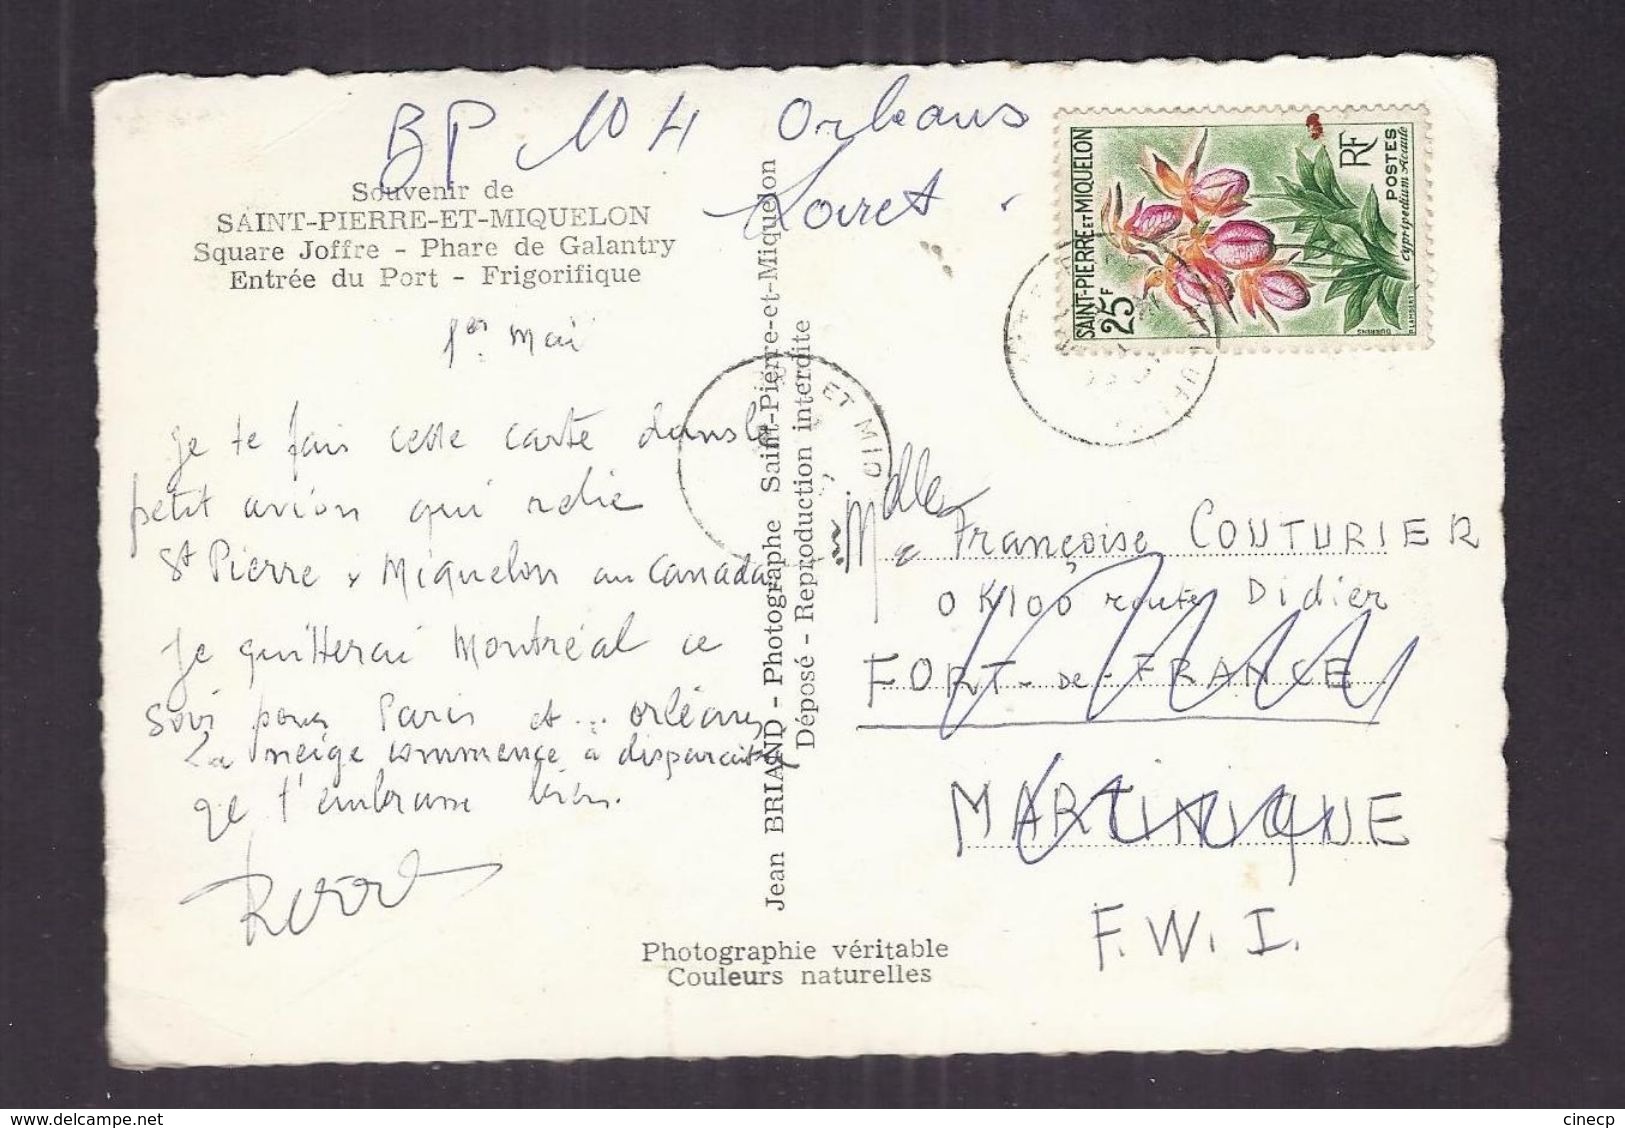 BP 104 Orleans
Loiret.
Souvenir de
SAINT-PIERRE-ET-MIQUELON
Square Joffre - Phare de Galantry
Entrée du Port - Frigorifique
1er Mai
Je te fais cette carte dans le
petit avion qui relie
St Pierre x Miquelon au Canada
Je quitterai Montréal ce
soir pour Paris et... Orléans
La neige commence à disparaitre
Je t'embrasse bien.
Jean BRIAND - Photographe Saint-Pierre-et-Miquelon
Déposé - Reproduction interdite
Photographie véritable
Couleurs naturelles
SAINT-PIERRE ET MIQUELON
25F
RF
POSTES
cypripedium Acaule
DURRENS
ET MIQ
Mdlle Françoise COUTURIER
0K100 route Didier
FORT-de-FRANCE
MARTINIQUE
F.W.I.
cinecp